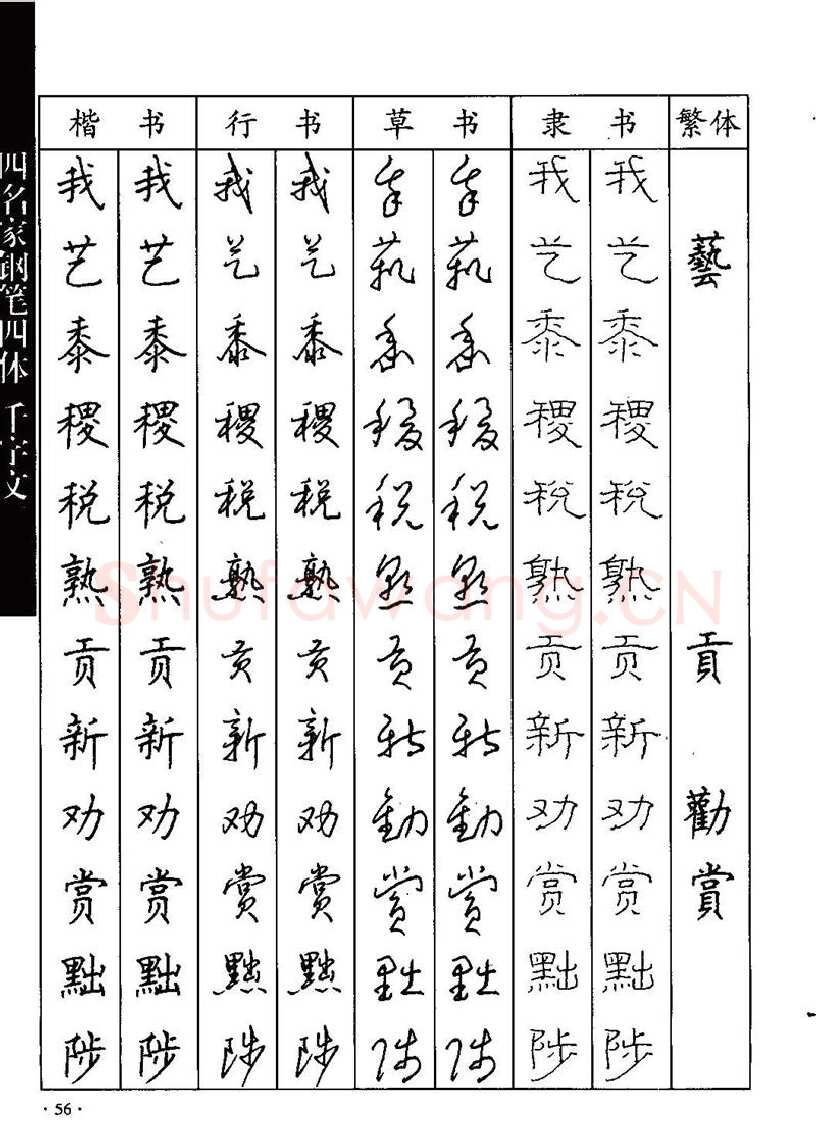 楷书 行书 草书 隶书 繁体
我 我 我 我 我 我 我 我
艺 艺 艺 艺 艺 艺 艺 艺 藝
黍 黍 黍 黍 黍 黍 黍 黍
稷 稷 稷 稷 稷 稷 稷 稷
税 税 税 税 税 税 税 税
熟 熟 熟 熟 熟 熟 熟 熟
贡 贡 贡 贡 贡 贡 贡 贡 貢
新 新 新 新 新 新 新 新
劝 劝 劝 劝 勸 勸 劝 劝 勸
赏 赏 赏 赏 赏 赏 赏 赏 賞
黜 黜 黜 黜 黜 黜 黜 黜
陟 陟 陟 陟 陟 陟 陟 陟
四名家钢笔四体 千字文
Shufawang.CN
·56·